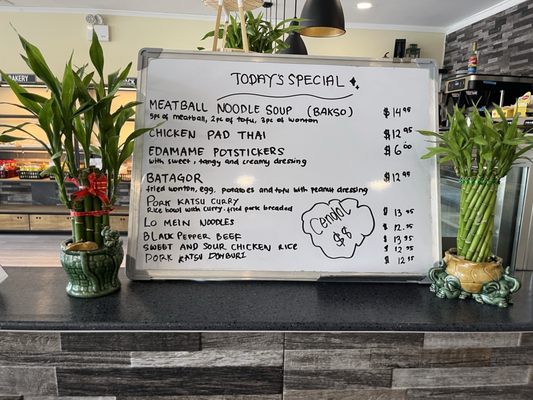 BAKERY
TODAY'S SPECIAL
MEATBALL NOODLE SOUP (BAKSO) $14.95
5pc of meatball, 2pc of tofu, 3pc of wonton
CHICKEN PAD THAI $12.95
EDAMAME POTSTICKERS $6.00
with sweet, tangy and creamy dressing
BATAGOR $12.95
fried wonton, egg, potatoes and tofu with peanut dressing
PORK KATSU CURRY $13.95
Rice bowl with curry, fried pork breaded
LO MEIN NOODLES $12.95
BLACK PEPPER BEEF $13.95
SWEET AND SOUR CHICKEN RICE $12.95
PORK KATSU DONBURI $12.95
Cendol
$8